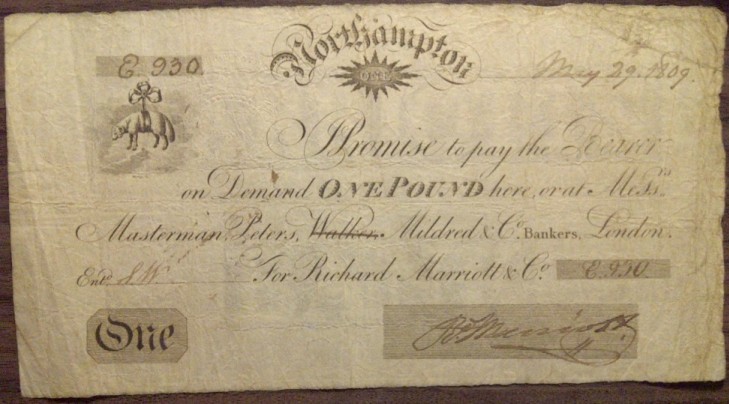 Northampton
E. 930.
ONE
May 29. 1809.
I Promise to pay the Bearer
on Demand ONE POUND here, or at Mess.rs
Masterman, Peters, Walker, Mildred & Co. Bankers, London.
Entd. J.W. For Richard Marriott & Co. E. 930
One
Rd Marriott